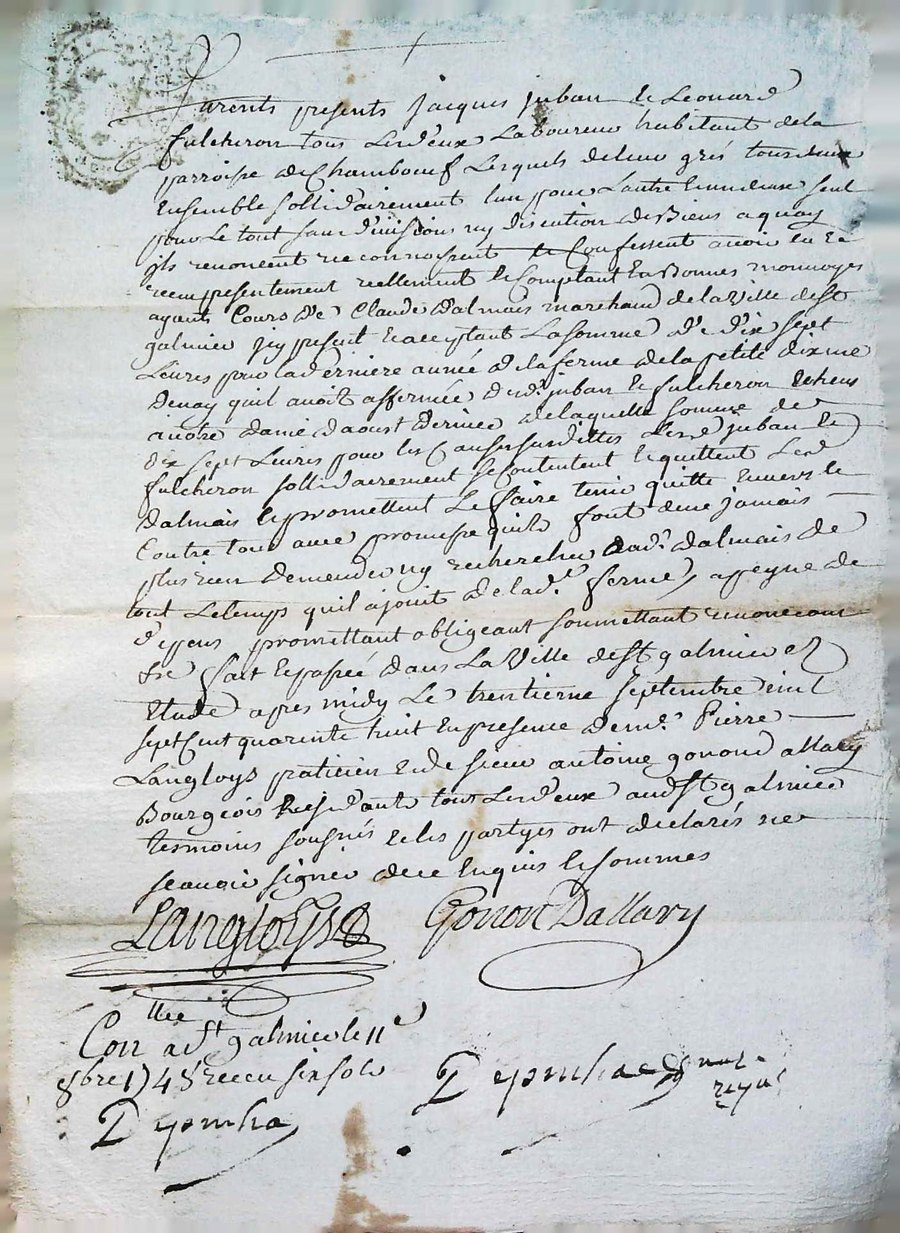 furents presents jacques juban & Leonard
fulcheron tous Lesdeux Laboureur habitant dela
parroisse de Chambœuf Lesquels deleur grés tous deux
Ensemble sollidairement lun pour Lautre Lun deux seul
pour Le tout sans divisions ny discution de Biens aquoy
ils renoncent reconnoissent & Confessent avoir eu &
receu presentement reallement & Comptant En Bonnes monnoyes
ayants Cours de Claude dalmais marchand de la Ville de st
galmier jcy present & acceptant La somme de dix sept
Livres pour la derniere année de la ferme de la petite dixme
quil avoit affermée desd. juban & fulcheron
a notre dame daoust dernier de laquelle somme de
dix sept Livres pour les Causes susdittes Lesd juban &
fulcheron sollidairement se Contentent & quittent Led
dalmais & promettent Le faire tenir quitte Envers &
Contre tous avec promesse quils font de ne jamais
plus rien demender ny rechercher aud. dalmais de
tout Letemps quil a jouit de lad.e ferme, a peyne de
despens promettant obligeant soumettant renonceant
&c fait & passé dans La Ville de st galmier &
Etude apres midy Le trentieme septembre mil
sept Cent quarente huit En presence de me. Pierre
Langloys praticien & de sieur antoine gonond allary
Bourgeois Residants tous Lesdeux aud st galmier
tesmoins sousnés & les partyes ont declarés ne
scauoir signer de ce Enquis & sommes
Langloys Gonon Dallary
Conllee a st galmier le 11e
8bre 1748 receu six sols